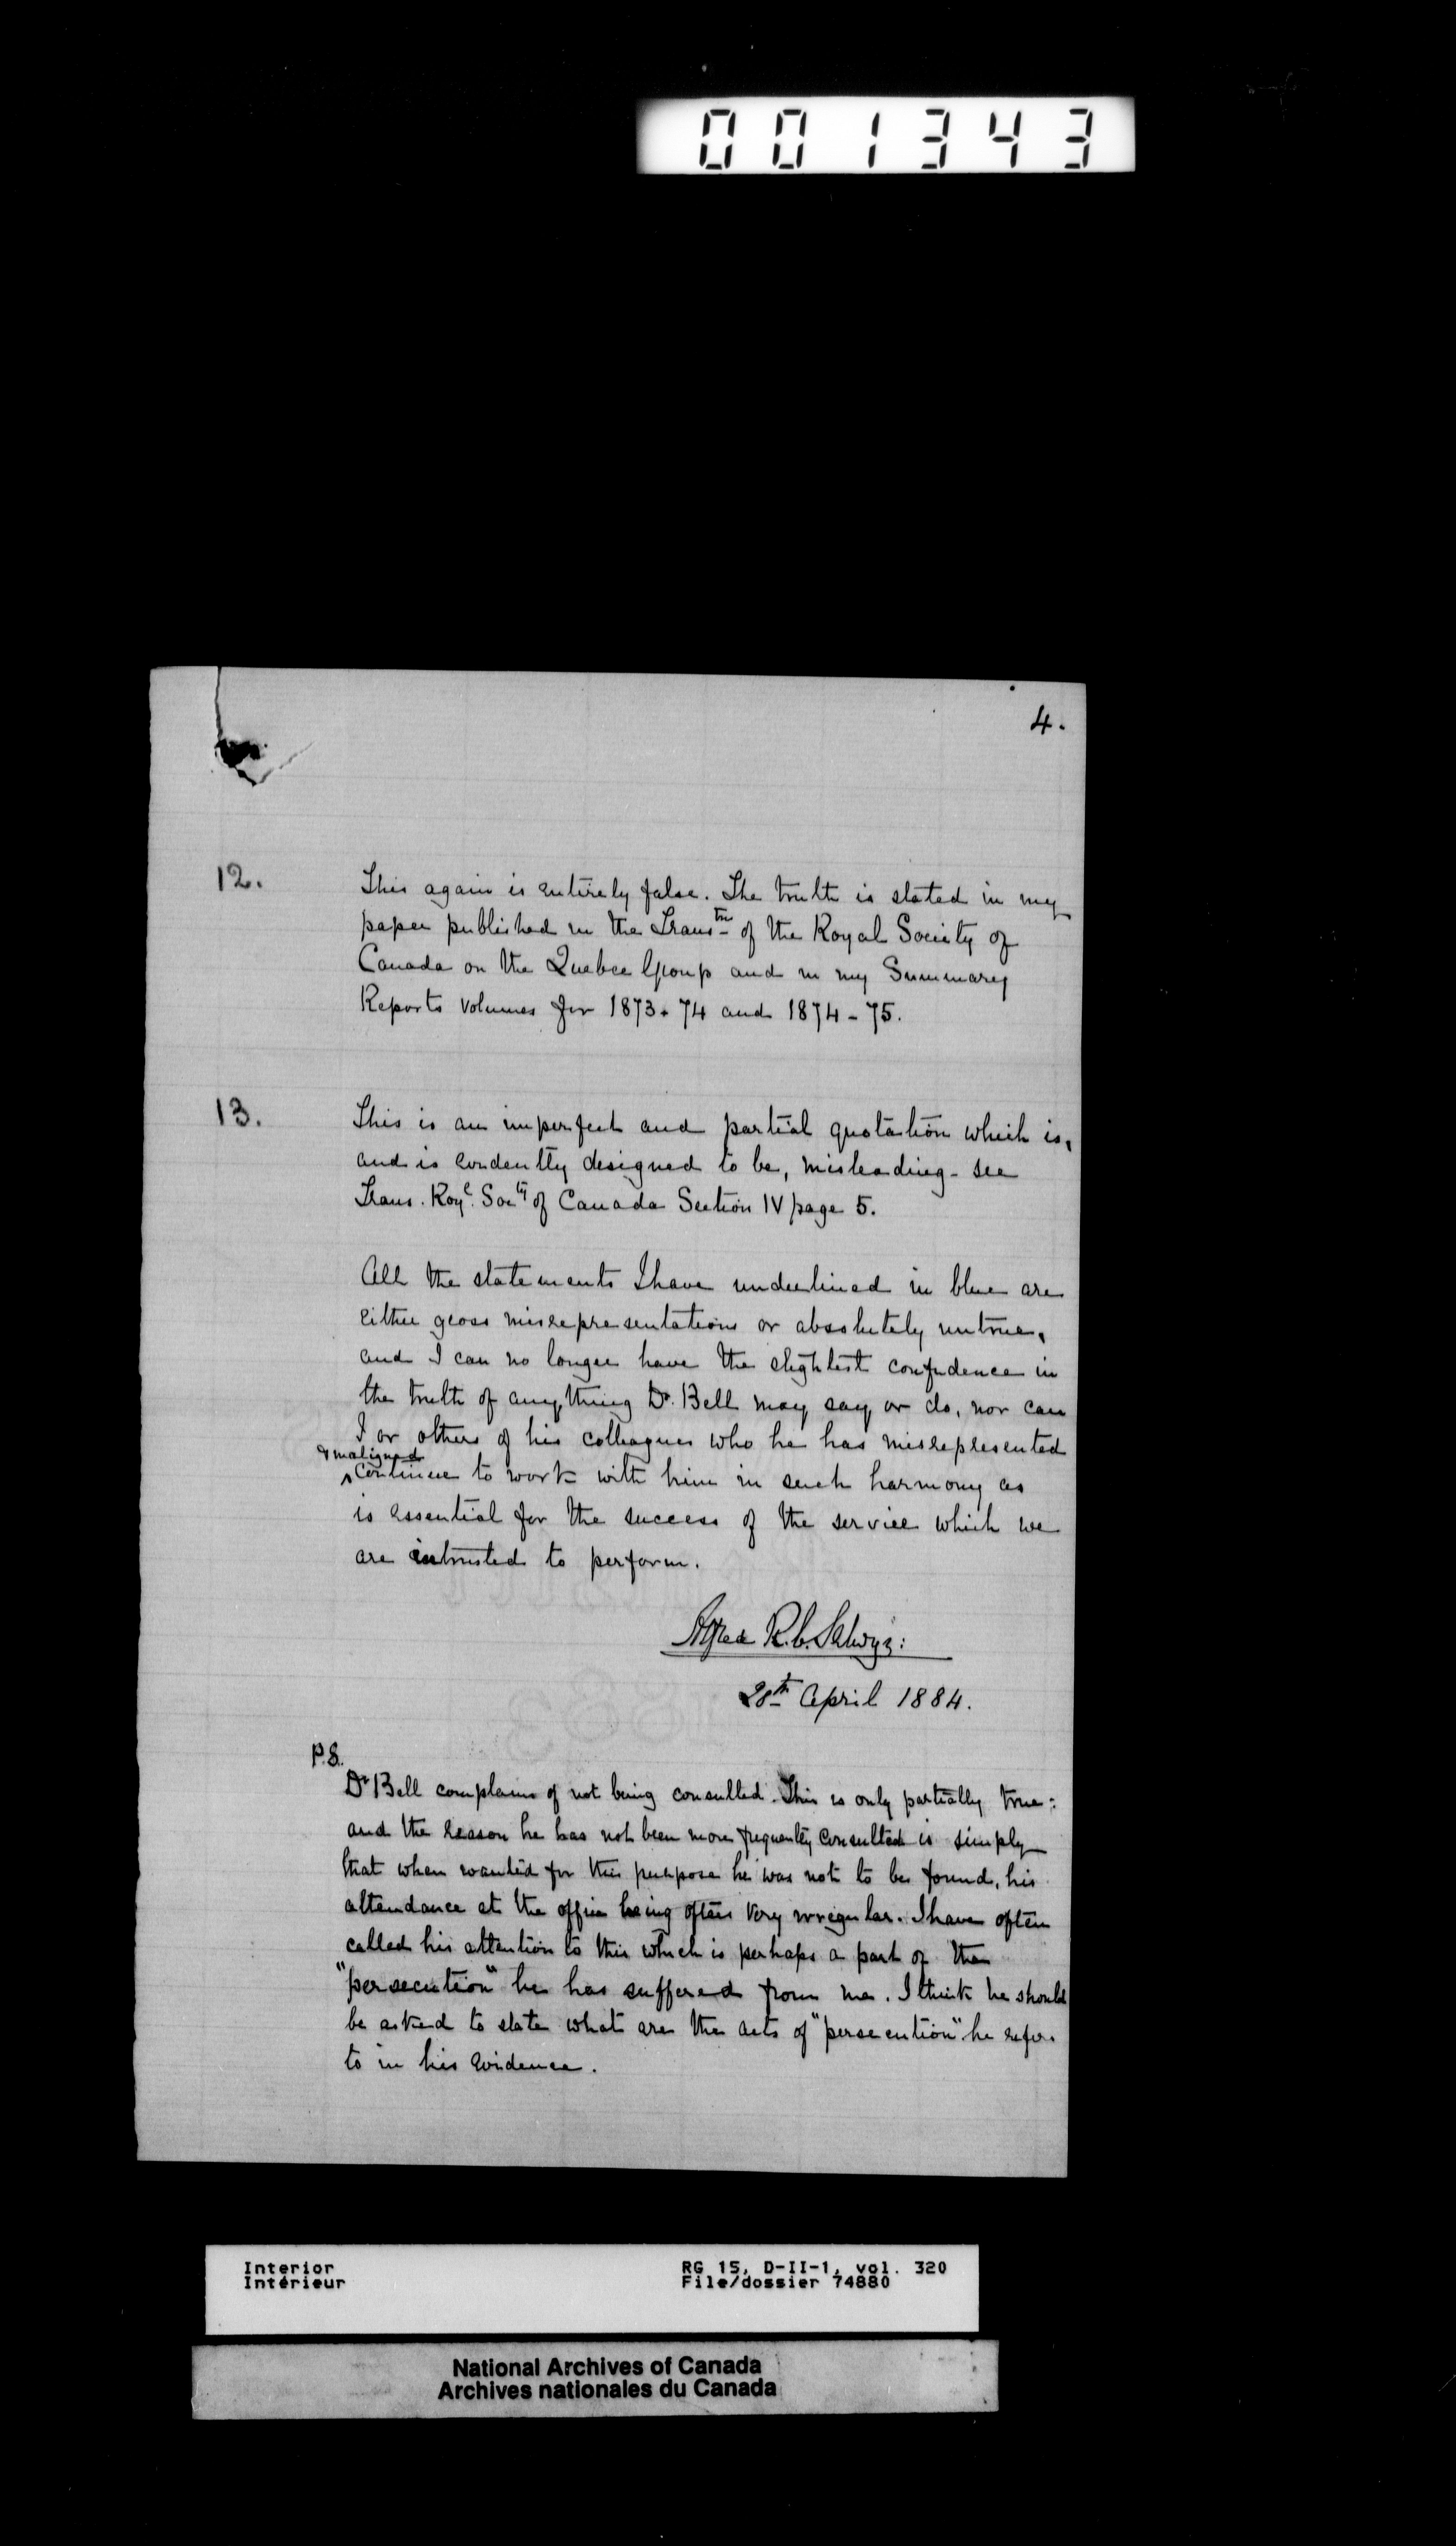 001343
4.
12. This again is entirely false. The truth is stated in my
paper published in the Trans^tns of the Royal Society of
Canada on the Quebec Group and in my Summary
Reports volumes for 1873-74 and 1874-75.
13. This is an imperfect and partial quotation which is,
and is evidently designed to be, misleading - see
Trans. Roy^l. Soc^ty of Canada Section IV page 5.
All the statements I have underlined in blue are
either gross misrepresentations or absolutely untrue,
and I can no longer have the slightest confidence in
the truth of anything Dr. Bell may say or do, nor can
I or others of his colleagues who he has misrepresented
& maligned
continue to work with him in such harmony as
is essential for the success of the service which we
are intrusted to perform.
Alfred R. C. Selwyn:
28th April 1884.
P.S.
Dr Bell complains of not being consulted. This is only partially true:
and the reason he has not been more frequently consulted is simply
that when wanted for this purpose he was not to be found, his
attendance at the office being often very irregular. I have often
called his attention to this which is perhaps a part of the
"persecution" he has suffered from me. I think he should
be asked to state what are the acts of "persecution" he refers
to in his evidence.
Interior RG 15, D-II-1, vol. 320
Intérieur File/dossier 74880
National Archives of Canada
Archives nationales du Canada